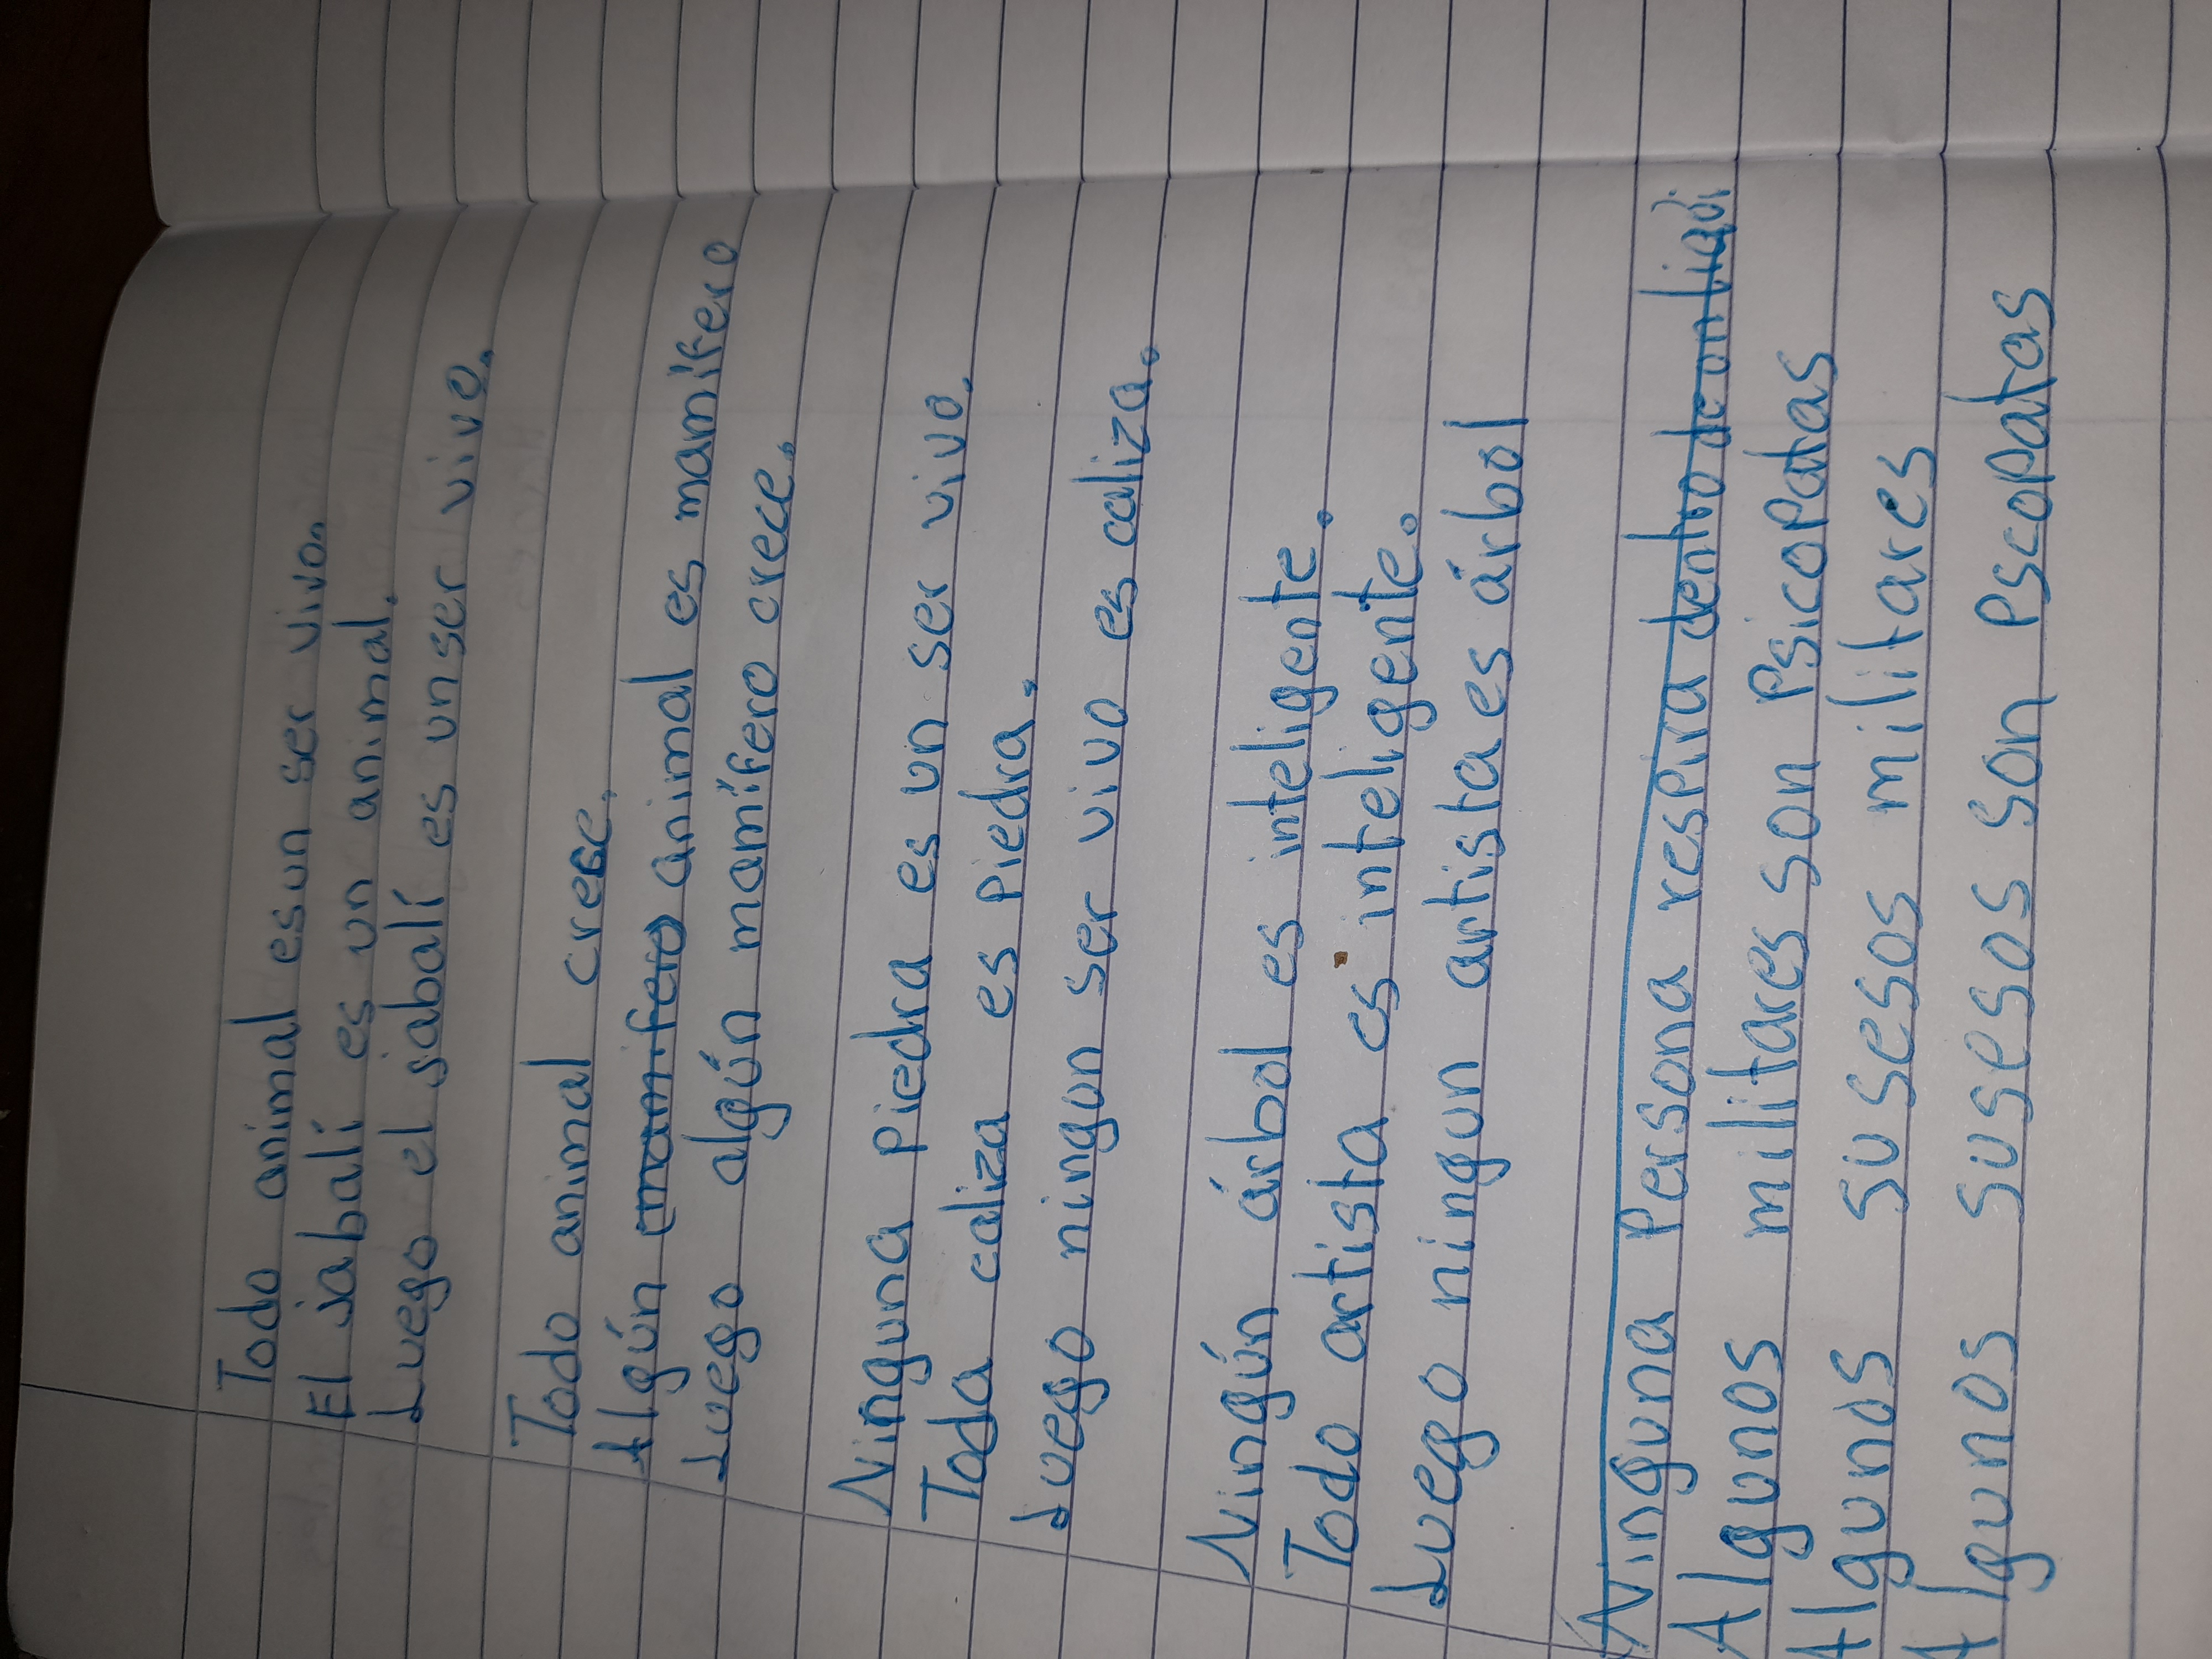 Todo animal es un ser vivo.
El jabalí es un animal.
Luego el jabalí es un ser vivo.
Todo animal crece.
Algún mamifero animal es mamífero
Luego algún mamífero crece.
Ninguna piedra es un ser vivo.
Toda caliza es piedra.
Luego ningun ser vivo es caliza.
Ningún árbol es inteligente.
Todo artista es inteligente.
Luego ningun artista es árbol
Ninguna Persona respira dentro de un
Algunos militares son Psicopatas
Algunos susesos militares
Algunos susesos son Pscopatas